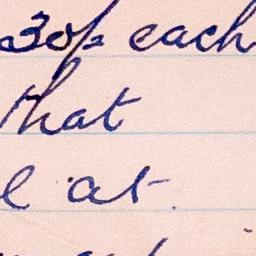 30/= each
that
at